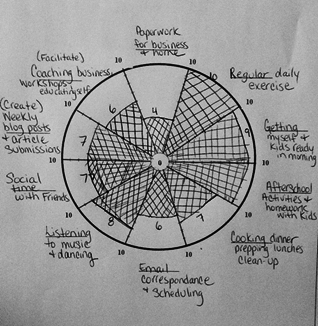 Paperwork
for business
& home
10
Regular daily
exercise
10
10
Getting
myself &
Kids ready
in morning
9
10
Afterschool
Activities &
homework
with Kids
10
Cooking dinner
prepping lunches
clean-up
7
10
Email
correspondance
& scheduling
6
10
Listening
to music
& dancing
8
10
Social
time
with Friends
7
10
(Create)
Weekly
blog posts
& article
submissions
7
10
(Facilitate)
Coaching business,
workshops
educating self
6
10
4
0